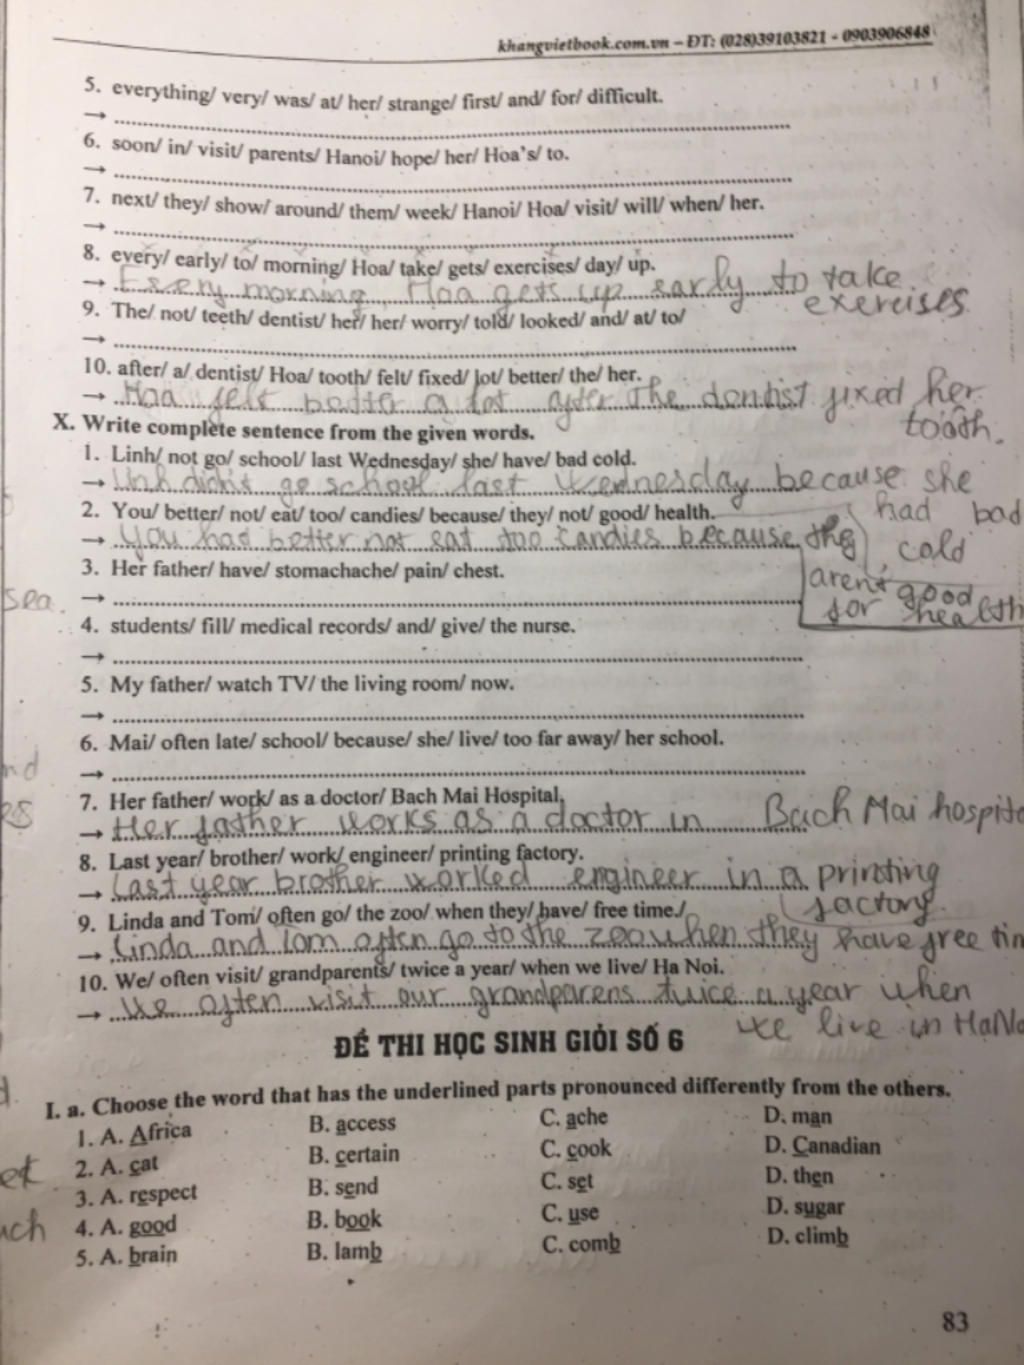 khangvietbook.com.vn – ĐT: (028)39103821 - 0903906848
5. everything/ very/ was/ at/ her/ strange/ first/ and/ for/ difficult.
→
6. soon/ in/ visit/ parents/ Hanoi/ hope/ her/ Hoa's/ to.
→
7. next/ they/ show/ around/ them/ week/ Hanoi/ Hoa/ visit/ will/ when/ her.
→
8. every/ early/ to/ morning/ Hoa/ take/ gets/ exercises/ day/ up.
→ Every morning, Hoa gets up early to take
exercises
9. The/ not/ teeth/ dentist/ her/ her/ worry/ told/ looked/ and/ at/ to/
→
10. after/ a/ dentist/ Hoa/ tooth/ felt/ fixed/ lot/ better/ the/ her.
→ Hoa felt better a lot after the dentist fixed her
tooth.
X. Write complete sentence from the given words.
1. Linh/ not go/ school/ last Wednesday/ she/ have/ bad cold.
→ Linh didn't go school last Wednesday because she
had bad
cold
2. You/ better/ not/ eat/ too/ candies/ because/ they/ not/ good/ health.
→ You had better not eat too candies because they
aren't good
for health
3. Her father/ have/ stomachache/ pain/ chest.
sea. →
4. students/ fill/ medical records/ and/ give/ the nurse.
→
5. My father/ watch TV/ the living room/ now.
→
6. Mai/ often late/ school/ because/ she/ live/ too far away/ her school.
nd →
7. Her father/ work/ as a doctor/ Bach Mai Hospital.
→ Her father works as a doctor in Bach Mai hospita
8. Last year/ brother/ work/ engineer/ printing factory.
→ Last year brother worked engineer in a printing
factory.
9. Linda and Tom/ often go/ the zoo/ when they/ have/ free time./
→ Linda and Tom often go to the zoo when they have free tim
10. We/ often visit/ grandparents/ twice a year/ when we live/ Ha Noi.
→ We often visit our grandparens twice a year when
we live in HaNo
ĐỀ THI HỌC SINH GIỎI SỐ 6
I. a. Choose the word that has the underlined parts pronounced differently from the others.
1. A. Africa B. access C. ache D. man
2. A. cat B. certain C. cook D. Canadian
3. A. respect B. send C. set D. then
4. A. good B. book C. use D. sugar
5. A. brain B. lamb C. comb D. climb
83